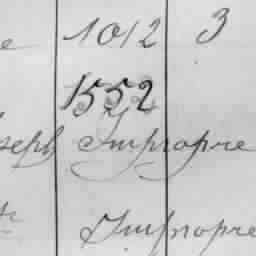 e 1012 3
1552
seph Impropre
Impropre